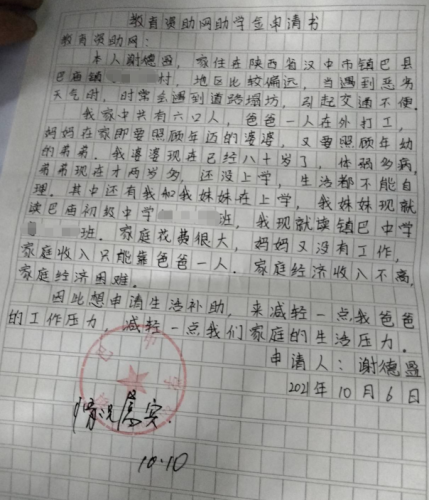 教育资助网助学金申请书
教育资助网:
本人谢德盈,家住在陕西省汉中市镇巴县
巴庙镇 村,地区比较偏远,当遇到恶劣
天气时,时常会遇到道路塌坊,引起交通不便。
我家中共有六口人,爸爸一人在外打工,
妈妈在家即要照顾年迈的婆婆,又要照顾年幼
的弟弟。我婆婆现在已经八十岁了,体弱多病,
弟弟现在才两岁多,还没上学,生活都不能自
理。其中还有我和我妹妹在上学,我妹妹现就
读巴庙初级中学 班,我现就读镇巴中学
班。家庭花费很大,妈妈又没有工作,
家庭收入只能靠爸爸一人。家庭经济收入不高,
家庭经济困难。
因此想申请生活补助,来减轻一点我爸爸
的工作压力,减轻一点我们家庭的生活压力。
申请人:谢德盈
2021年10月6日
情况属实.
10.10